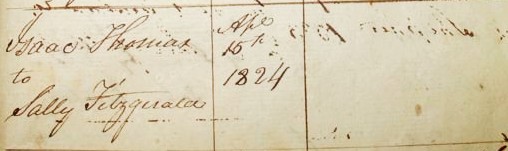 Isaac Thomas
to
Sally Fitzgerald
Apl
15th
1824